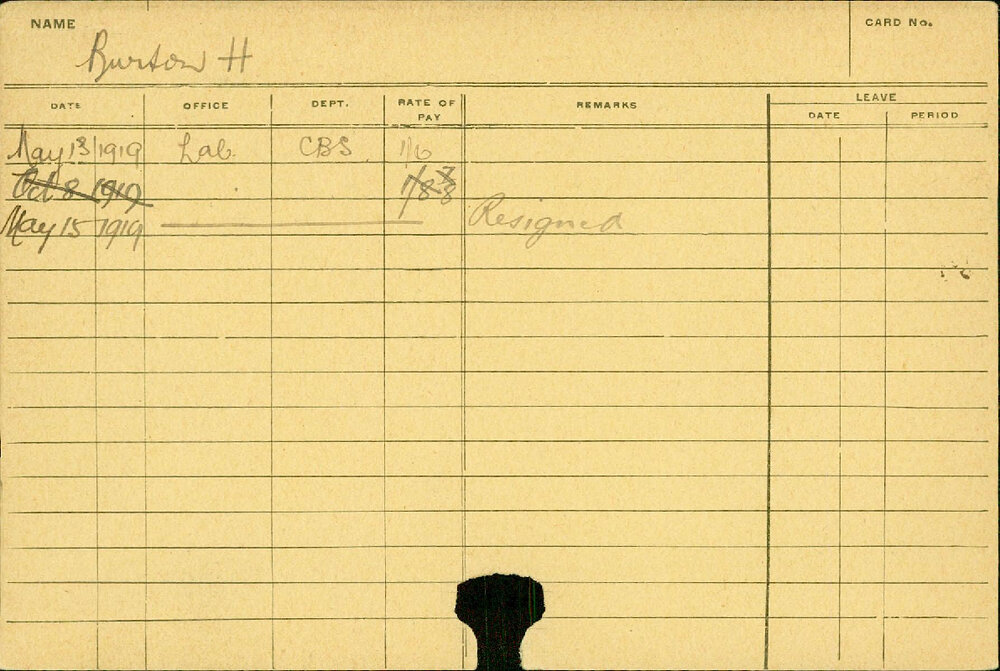 NAME CARD No.
Burton H
DATE OFFICE DEPT. RATE OF PAY REMARKS LEAVE
DATE PERIOD
May 13 1919 Lab. CBS. 1/6
Oct 8 1919 1/8
May 15 1919 Resigned